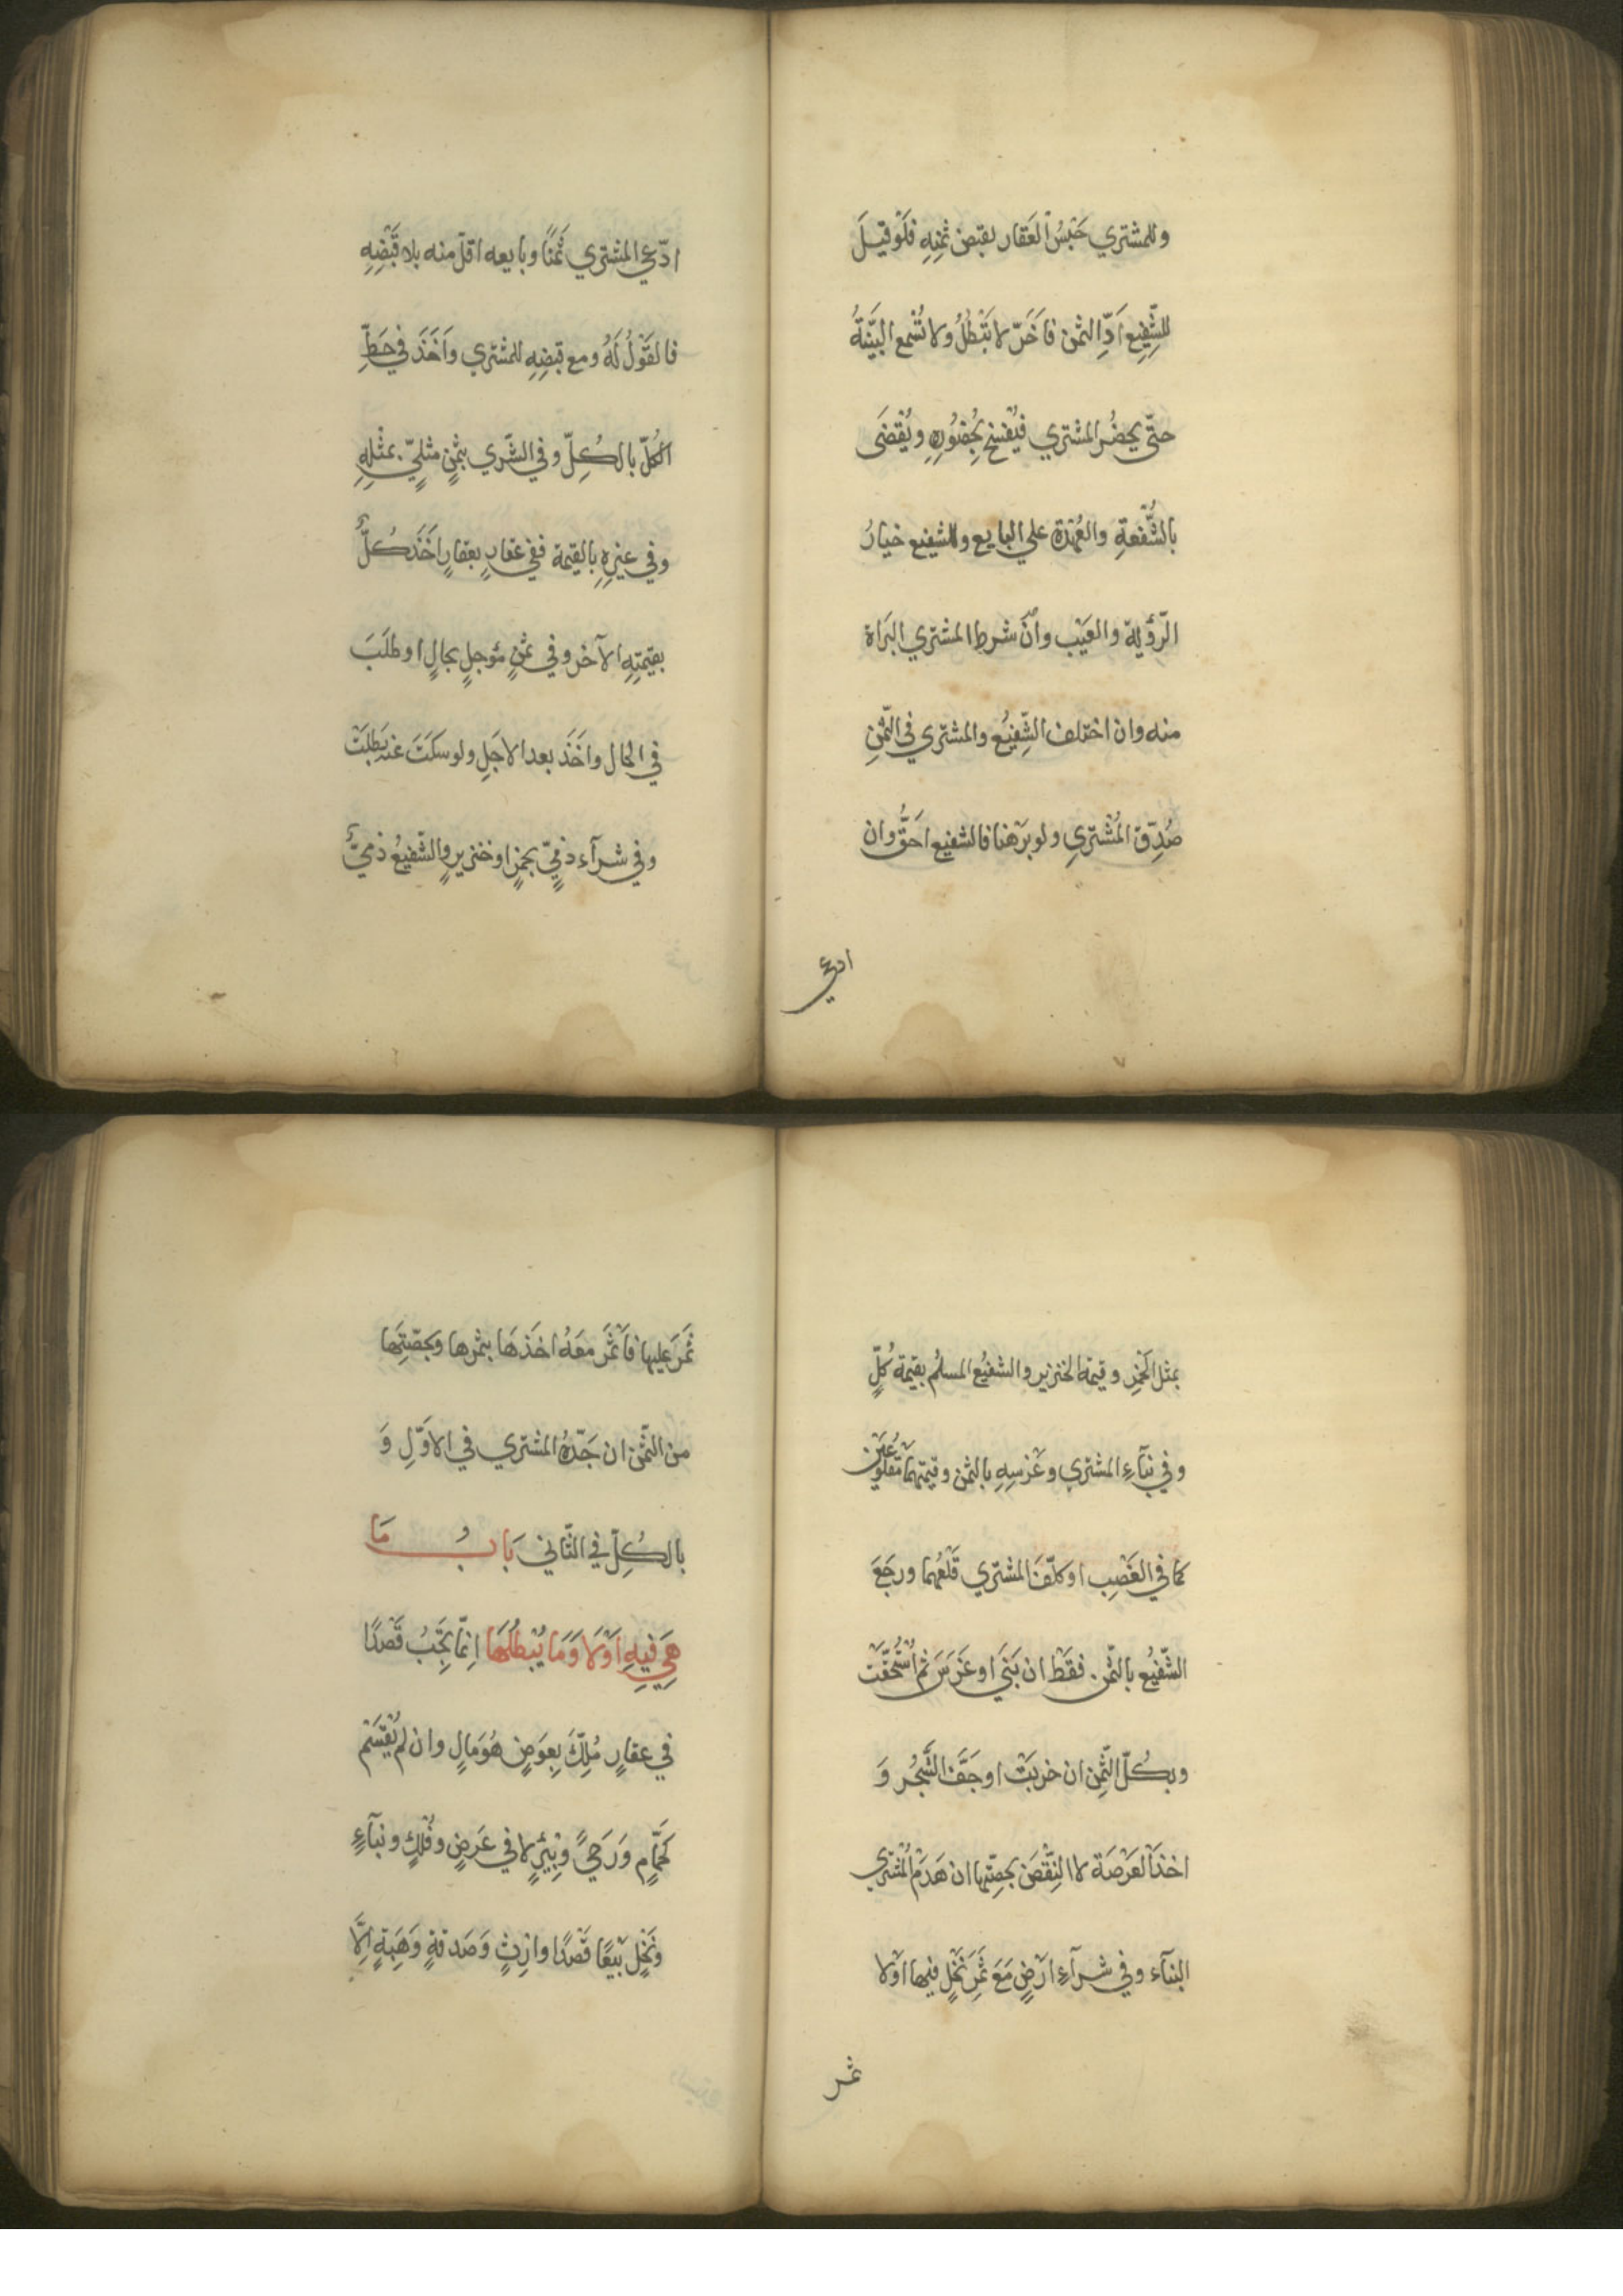 وللمشتري حَبْسُ العَقار لقبض ثمنِهِ فلَوْ قيلَ
للشّفِيعِ اَدِّ الثمن فاَخَّرَ لا تَبْطُلُ ولا تُسْمع البيّنةُ
حتّى يحضُر المشتري فيُفْسَخ بحُضُورِهِ ويُقْضَى
بالشُّفْعةِ والعُهْدَة علي البايع وللشفيع خيارُ
الرّؤية والعَيْب وانْ شرط المشتري البَرَاة
منه وان اختلف الشّفِيعُ والمشتري في الثّمنِ
صُدِّقَ المُشْتري ولو بَرْهَنا فالشفيع احَقُّ وان
ادّعي
ادّعي المشتري ثَمنًا وبايعه اقلّ منه بلا قَبْضِهِ
فالقَوْلُ لَهُ ومع قبضِهِ للمشتري واَخَذَ في حَطِّ
الكُلّ بالكُلِّ وفي الشّري بثمنٍ مثليّ بمثْلِهِ
وفي غيرِهِ بالقيمة ففي عقارٍ بعقارٍ اخَذَ كُلٌّ
بقيمَتِهِ الآخر وفي ثمنٍ مُوجلٍ بحالٍ او طلَبَ
في الحال واَخَذَ بعد الاجَلِ ولو سكَتَ عنه بَطلَتْ
وفي شرآء ذمّيّ بخمرٍ او خنزيرٍ والشّفيعُ ذميٌّ
بمثل الخَمْرِ وقيمة الخنزير والشفيعُ المسلمُ بقيمة كُلٍّ
وفي بنآءِ المشتري وغَرْسِهِ بالثمن وقيمتِهِما مَقْلُوعَيْن
كما في الغَصْبِ او كلّفَ المشتري قَلْعَهُما ورجَعَ
الشّفيعُ بالثّمن فقَطْ ان بَنَي او غَرَسَ ثم اُسْتُحِقّتْ
وبكُلّ الثّمنِ ان خربَتْ او جَفَّ الشَّجُر وَ
اخذَ العَرْصَة لا النّقْضَ بحِصّتِها ان هَدَمَ المُشْتري
البنآء وفي شرآءِ ارْضٍ مَعَ ثَمَرِ نَخْلٍ فيها اوْلا
ثمر
ثَمَرَ عليها فاَثْمَرَ معَهُ اخَذهَا بثمرها وبحصّتِها
من الثّمن ان جَدّهُ المشتري في الاَوّلِ وَ
بالكُلِّ في الثّاني بَابُ مَا
هِيَ فيهِ اَوْلا وَمَا يُبْطِلُهَا اِنّما تجِبُ قَصْدًا
في عقارٍ مُلِّكَ بِعِوَضٍ هُوَ مَالٍ وان لم يُقْسَمْ
كَحَمَّامٍ وَرَحيً وبِيْرٍ لا في عَرضٍ وفُلْكٍ وبنآءٍ
ونَخْلٍ بَيْعًا قَصْدًا وارْثٍ وَصَدقةٍ وَهِبَةٍ اِلّا